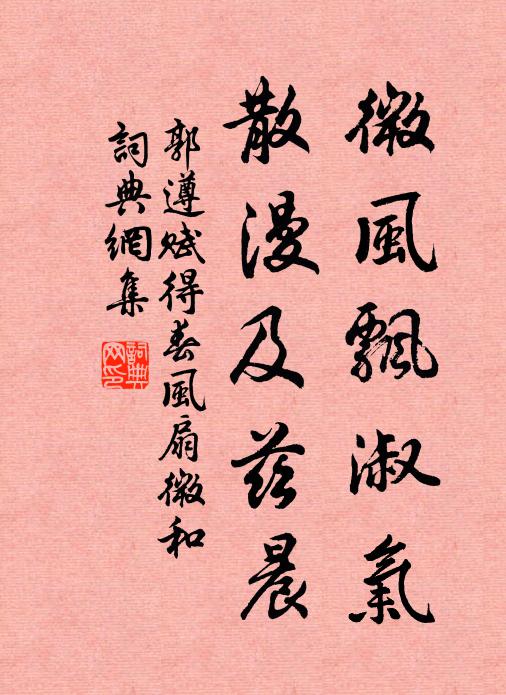 微風飄淑氣
散漫及茲晨
郭遵賦得春風扇微和
詞典網集
詞典網印